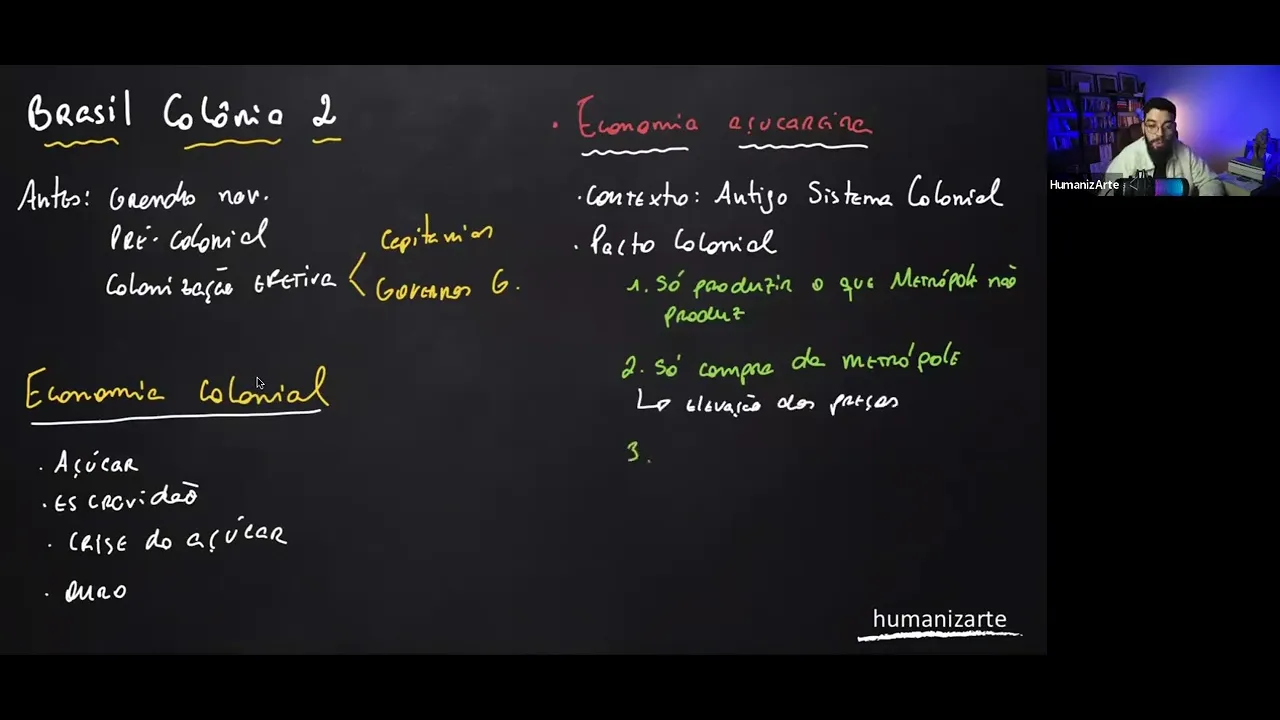 Brasil Colônia 2
Antes: Grandes nav.
Pré-Colonial
Colonização efetiva
Capitanias
Governos G.
Economia Colonial
· Açúcar
· Escravidão
· Crise do açúcar
· Ouro
· Economia açucareira
· Contexto: Antigo Sistema Colonial
· Pacto Colonial
1. Só produzir o que Metrópole não
produz
2. Só compra da metrópole
↳ elevação dos preços
3.
humanizarte
HumanizArte